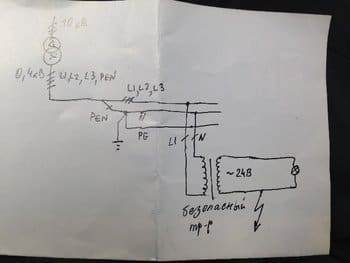 10 кВ
0,4кВ L1, L2, L3, PEN
L1, L2, L3
PEN
N
PE
L1
N
~24В
безопасный
тр-р